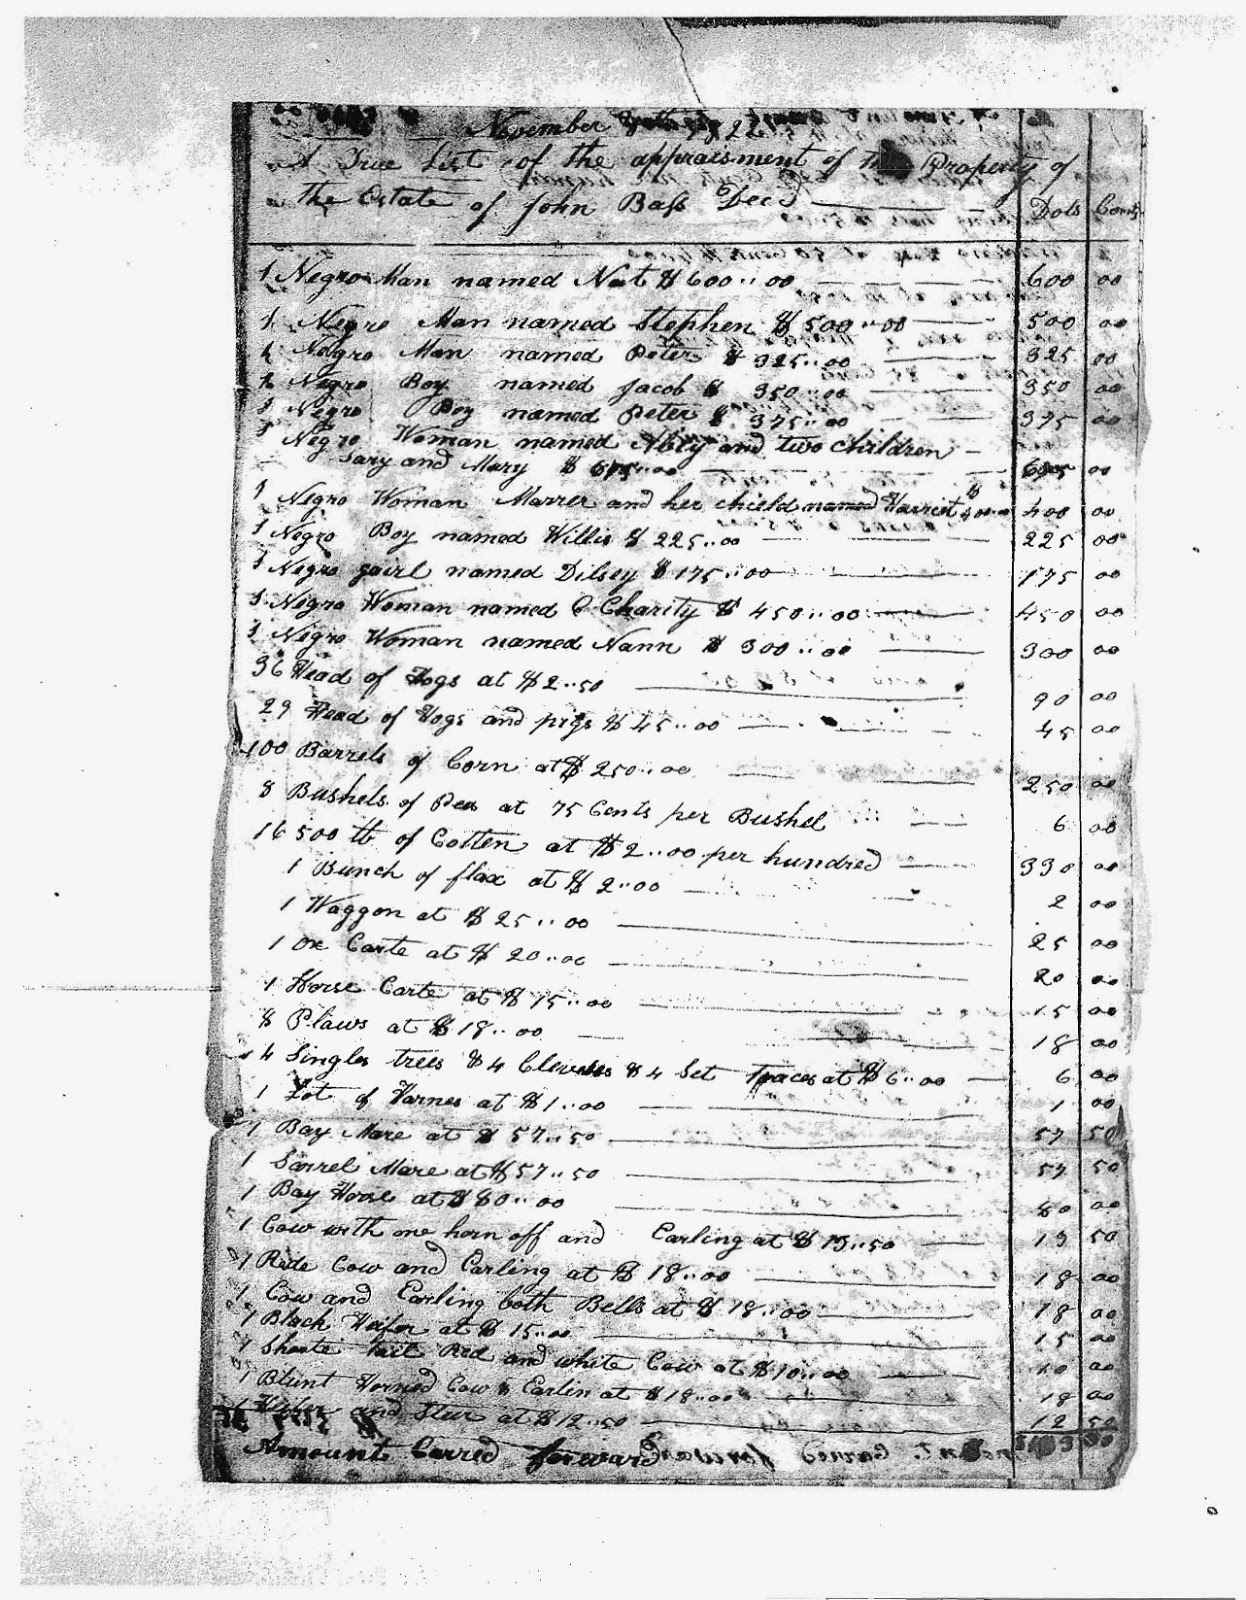 November 22
A True List of the appraisment of the Property of
the Estate of John Bass Decd Dols Cents
1 Negro Man named Nat $600..00 600 00
1 Negro Man named Stephen $500..00 500 00
1 Negro Man named Peter $325..00 325 00
1 Negro Boy named Jacob $350..00 350 00
1 Negro Boy named Peter $375..00 375 00
1 Negro Woman named and two children
Sary and Mary $ 00
1 Negro Woman Marrer and her chield named Harriet $400.. 400 00
1 Negro Boy named Willis $225..00 225 00
1 Negro gairl named Dilsey $175..00 175 00
1 Negro Woman named Charity $450..00 450 00
1 Negro Woman named Nann $300..00 300 00
36 Head of Hogs at $2..50 90 00
29 Head of Hogs and pigs $45..00 45 00
100 Barrels of Corn at $250..00 250 00
8 Bushels of Peas at 75 Cents per Bushel 6 00
16500 lb of Cotten at $2..00 per hundred 330 00
1 Bunch of flax at $2..00 2 00
1 Waggon at $25..00 25 00
1 Ox Carte at $20..00 20 00
1 Horse Carte at $15..00 15 00
8 Plaws at $18..00 18 00
4 Singles trees & 4 Clevises & 4 Set Traces at $6..00 6 00
1 Lot of Harnes at $1..00 1 00
1 Bay Mare at $57..50 57 50
1 Sarrel Mare at $57..50 57 50
1 Bay Horse at $80..00 80 00
1 Cow with one horn off and Earling at $13..50 13 50
1 Rede Cow and Earling at $18..00 18 00
1 Cow and Earling both Bells at $18..00 18 00
1 Black Heifer at $15..00 15 00
1 Shorte tail Red and white Cow at $10..00 10 00
1 Blunt Horned Cow & Earlin at $18..00 18 00
1 Heifer and Stear at $12..50 12 50
Amount Carred forward